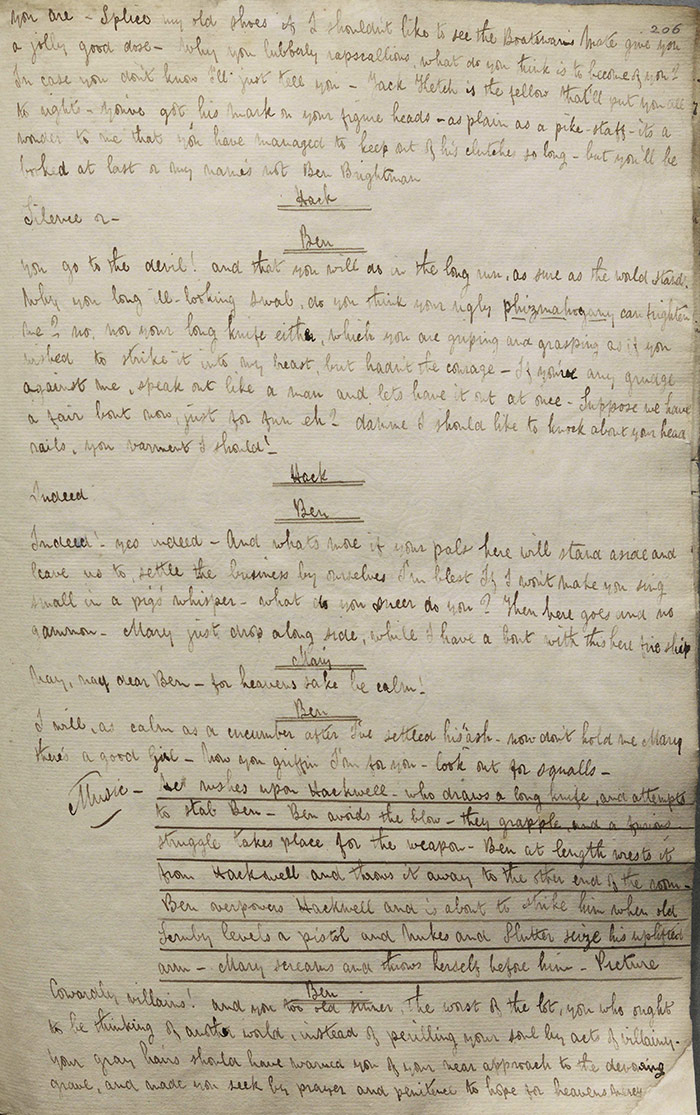 206
you are - Splice my old shoes if I shouldn't like to see the Boatswains Mate give you
a jolly good dose - Why you lubberly rapscallions, what do you think is to become of you?
In case you don't know I'll just tell you - Jack Ketch is the fellow that'll put you all
to rights - you've got his mark on your figure heads - as plain as a pike-staff - its a
wonder to me that you have managed to keep out of his clutches so long - but you'll be
booked at last or my name's not Ben Brightman
Hack
Silence or -
Ben
You go to the devil! and that you will do in the long run, as sure as the world stands.
Why you long ill-looking swab, do you think your ugly phizmahogany can frighten
me? no, nor your long knife either, which you are griping and grasping as if you
wished to strike it into my breast, but hadn't the courage - If you've any grudge
against me, speak out like a man and lets have it out at once - Suppose we have
a fair bout now, just for fun eh? damme I should like to knock about your head
rails, you varment I should!
Hack
Indeed
Ben
Indeed! yes indeed - And whats more if your pals here will stand aside and
leave us to settle the business by ourselves I'm blest if I won't make you sing
small in a pigs whisper - what do you sneer do you? Then here goes and no
gammon - Mary just drop along side, while I have a bout with this here fire ship
Mary
Nay, nay dear Ben - for heavens sake be calm!
Ben
I will, as calm as a cucumber after I've settled his ash - now don't hold me Mary
there's a good Girl - Now you griffin I'm for you - look out for squalls -
Music - he rushes upon Hackwell - who draws a long knife, and attempts
to stab Ben - Ben avoids the blow - they grapple, and a furious
struggle takes place for the weapon - Ben at length wrests it
from Hackwell and throws it away to the other end of the room -
Ben overpowers Hackwell and is about to strike him when old
levels a pistol and Nukes and Flutter seize his uplifted
arm - Mary screams and throws herself before him - Picture
Ben
Cowardly villains! and you old sinner, the worst of the lot, you who ought
to be thinking of another world, instead of perilling your soul by acts of villainy -
Your gray hairs should have warned you of your near approach to the devouring
grave, and made you seek by prayer and penitence to hope for heavens mercy